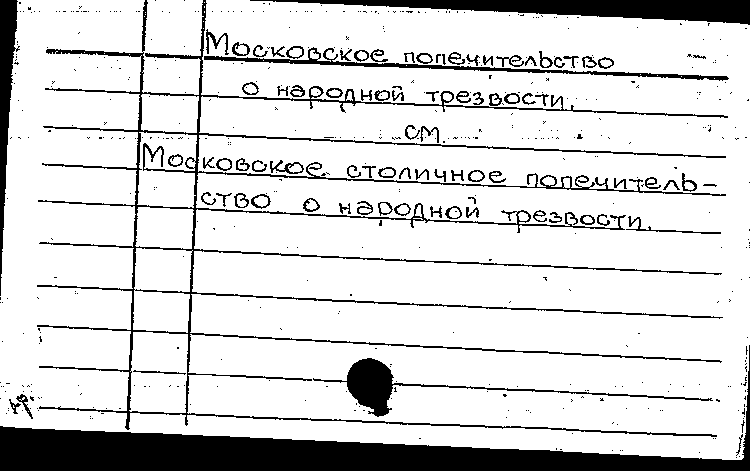 Московское попечительство
о народной трезвости.
см.
Московское столичное попечитель-
ство о народной трезвости.